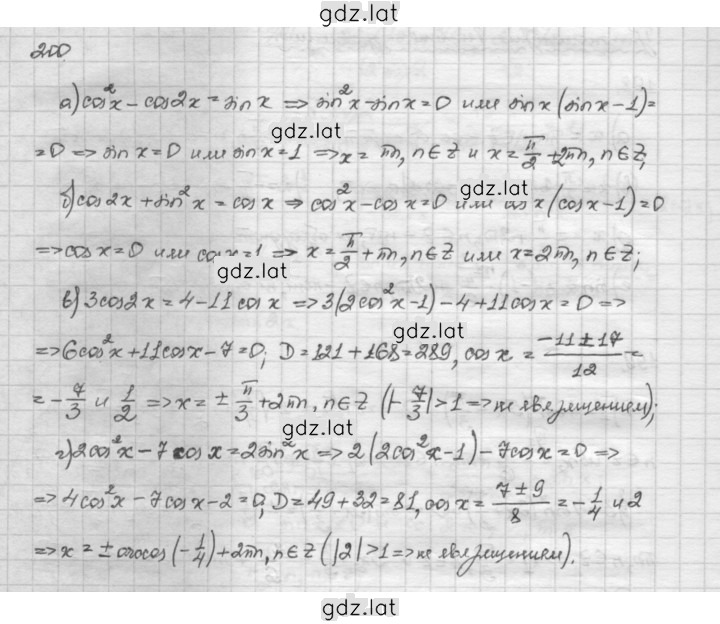 gdz.lat
200
а) cos²x - cos2x = sin x ⇒ sin²x - sin x = 0 или sin x (sin x - 1) =
gdz.lat
= 0 ⇒ sin x = 0 или sin x = 1 ⇒ x = πn, n ∈ Z и x = π/2 + 2πn, n ∈ Z;
gdz.lat
б) cos2x + sin²x = cos x ⇒ cos²x - cos x = 0 или cos x (cos x - 1) = 0
⇒ cos x = 0 или cos x = 1 ⇒ x = π/2 + πn, n ∈ Z или x = 2πn, n ∈ Z;
gdz.lat
в) 3cos2x = 4 - 11 cos x ⇒ 3(2cos²x - 1) - 4 + 11cos x = 0 ⇒
gdz.lat
⇒ 6cos²x + 11cos x - 7 = 0; D = 121 + 168 = 289, cos x = (-11 ± 17)/12 =
= -7/3 и 1/2 ⇒ x = ± π/3 + 2πn, n ∈ Z (|-7/3| > 1 ⇒ не явл. решением);
gdz.lat
г) 2cos²x - 7cos x = 2sin²x ⇒ 2(2cos²x - 1) - 7cos x = 0 ⇒
⇒ 4cos²x - 7cos x - 2 = 0; D = 49 + 32 = 81, cos x = (7 ± 9)/8 = -1/4 и 2
⇒ x = ± arccos(-1/4) + 2πn, n ∈ Z (|2| > 1 ⇒ не явл. решением).
gdz.lat